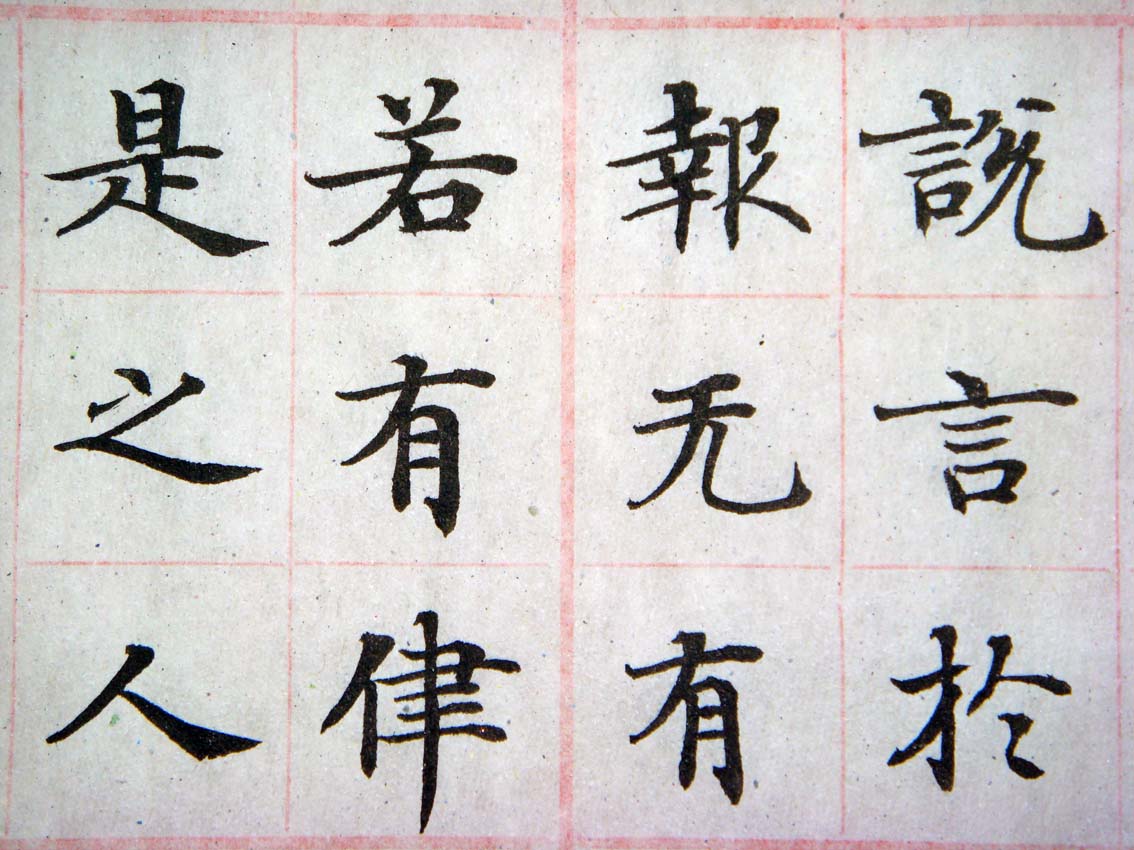 説言於
報无有
若有侓
是之人